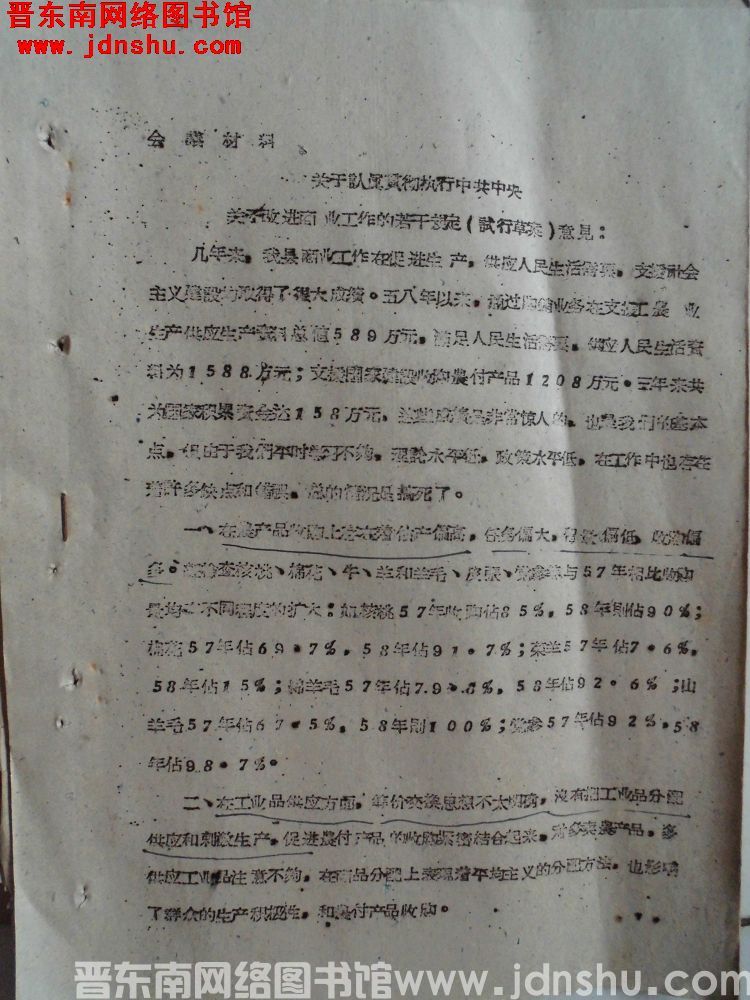 晋东南网络图书馆
www.jdnshu.com
会議材料
关于認真貫彻执行中共中央
关于改进商业工作的若干規定(試行草案)意見:
几年来,我县商业工作在促进生产,供应人民生活需要,支援社会
主义建設均取得了很大成绩。五八年以来,通过购销业务在支援工農业
生产供应生产資料总值589万元,滿足人民生活需要,供应人民生活資
料为1588万元;支援国家建設收购農付产品1208万元。三年来共
为国家积累資金达158万元,这些成績是非常惊人的,也是我們的基本
点。但由于我們平时学习不夠,理論水平低,政策水平低,在工作中也存在
着許多缺点和錯誤,总的情况是搞死了。
一、在農产品收购上存在着估产偏高,任务偏大,留量偏低,收购偏
多。經檢查核桃、棉花、牛、羊和羊毛、皮張、党參等与57年相比收购
量均有不同程度的扩大:如核桃57年收购佔85%,58年則佔90%;
棉花57年佔69·7%,58年佔91·7%;菜羊57年佔7·6%,
58年佔15%;綿羊毛57年佔79· %,58年佔92·6%;山
羊毛57年佔67·5%,58年則100%;党參57年佔92%,58
年佔98·7%。
二、在工业品供应方面,等价交換思想不太明确,沒有把工业品分配
供应和刺激生产,促进農付产品的收购緊密結合起来,对多卖農产品,多
供应工业品注意不夠,在商品分配上表現着平均主义的分配方法,也影响
了群众的生产积极性,和農付产品收购。
晋东南网络图书馆www.jdnshu.com